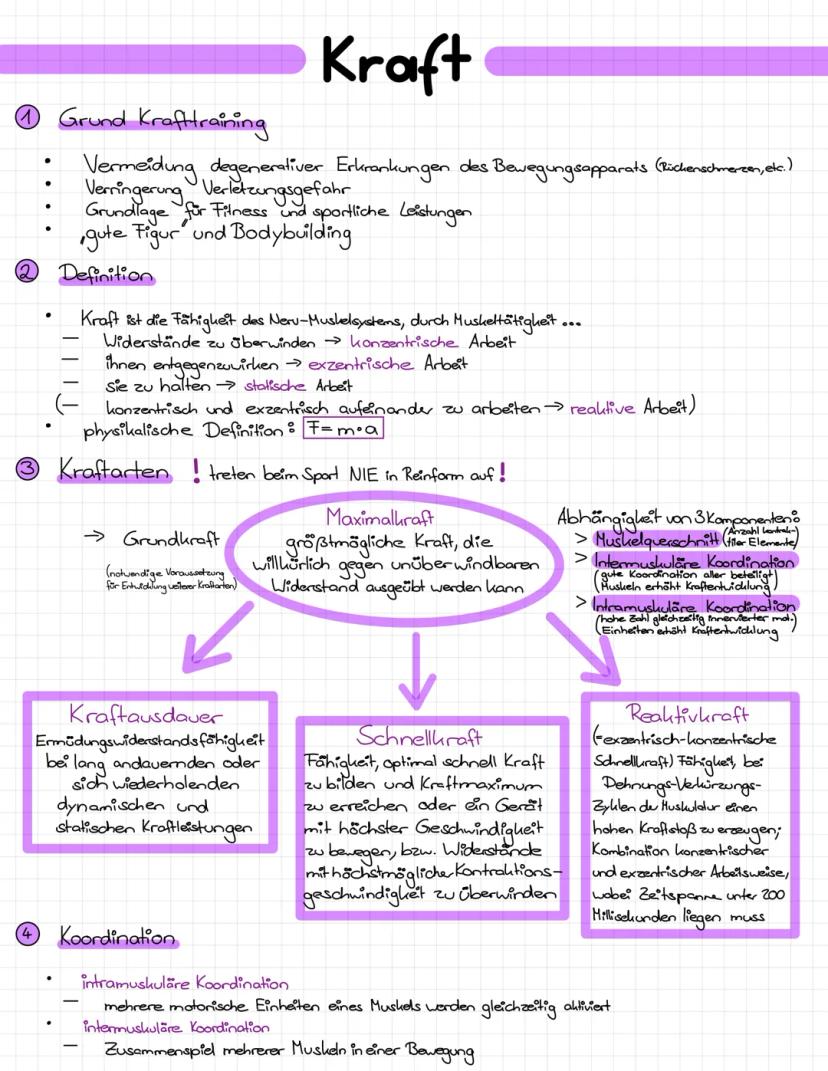 Kraft
① Grund Krafttraining
• Vermeidung degenerativer Erkrankungen des Bewegungsapparats (Rückenschmerzen, etc.)
• Verringerung Verletzungsgefahr
• Grundlage für Fitness und sportliche Leistungen
• „gute Figur" und Bodybuilding
② Definition
• Kraft ist die Fähigkeit des Nerv-Muskelsystems, durch Muskeltätigkeit ...
— Widerstände zu überwinden → konzentrische Arbeit
— ihnen entgegenzuwirken → exzentrische Arbeit
— sie zu halten → statische Arbeit
(— konzentrisch und exzentrisch aufeinander zu arbeiten → reaktive Arbeit)
• physikalische Definition: F = m • a
③ Kraftarten ! treten beim Sport NIE in Reinform auf !
→ Grundkraft
(notwendige Voraussetzung
für Entwicklung weiterer Kraftarten)
Maximalkraft
größtmögliche Kraft, die
willkürlich gegen unüberwindbaren
Widerstand ausgeübt werden kann
Abhängigkeit von 3 Komponenten:
> Muskelquerschnitt (Anzahl kontrak-
tiler Elemente)
> Intermuskuläre Koordination
(gute Koordination aller beteiligt)
Muskeln erhöht Kraftentwicklung
> Intramuskuläre Koordination
(hohe Zahl gleichzeitig innervierter mot.)
Einheiten erhöht Kraftentwicklung
Kraftausdauer
Ermüdungswiderstandsfähigkeit
bei lang andauernden oder
sich wiederholenden
dynamischen und
statischen Kraftleistungen
Schnellkraft
Fähigkeit, optimal schnell Kraft
zu bilden und Kraftmaximum
zu erreichen oder ein Gerät
mit höchster Geschwindigkeit
zu bewegen, bzw. Widerstände
mit höchstmögliche Kontraktions-
geschwindigkeit zu überwinden
Reaktivkraft
(=exzentrisch-konzentrische
Schnellkraft) Fähigkeit, bei
Dehnungs-Verkürzungs-
Zyklen der Muskulatur einen
hohen Kraftstoß zu erzeugen;
Kombination konzentrischer
und exzentrischer Arbeitsweise,
wobei Zeitspanne unter 200
Millisekunden liegen muss
④ Koordination
• intramuskuläre Koordination
— mehrere motorische Einheiten eines Muskels werden gleichzeitig aktiviert
• intermuskuläre Koordination
— Zusammenspiel mehrerer Muskeln in einer Bewegung